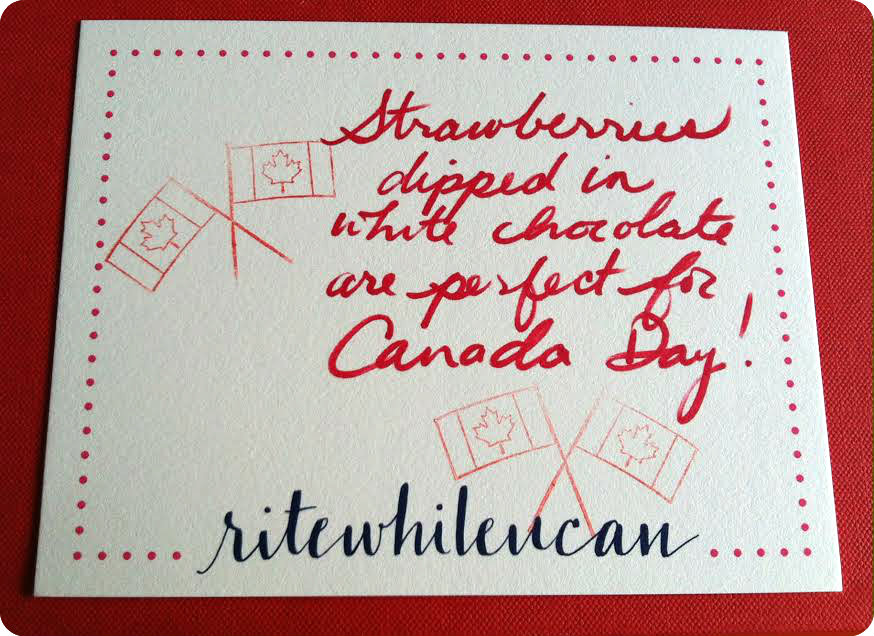 Strawberries
dipped in
white chocolate
are perfect for
Canada Day!
ritewhileucan